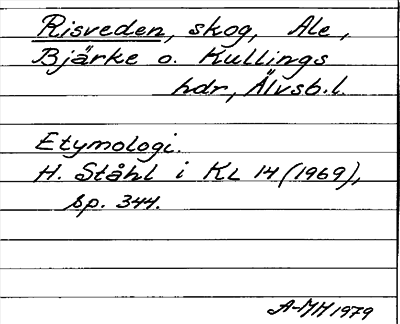 Risveden, skog, Ale,
Bjärke o. Kullings
hdr, Älvsb.l.
Etymologi.
H. Ståhl i KL 14 (1969),
sp. 344.
A-MH 1979